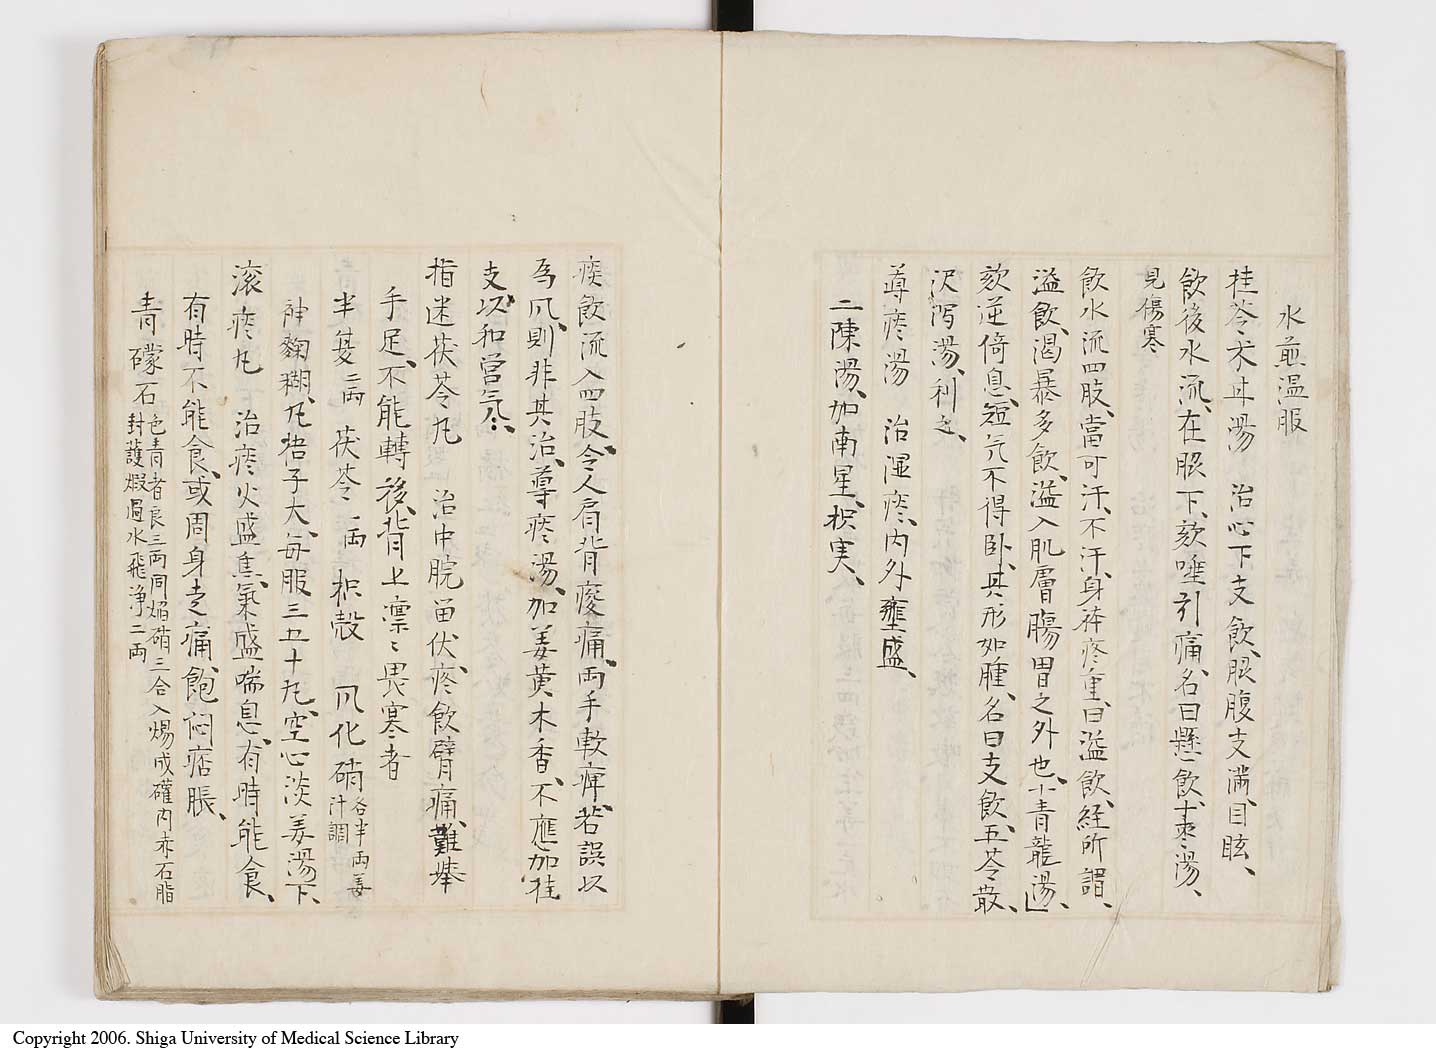 水煎温服
桂苓朮丼湯 治心下支飲、脹腹支満、目眩、
飲後水流、在脇下、欬唾引痛、名曰懸飲、十枣湯、
見傷寒
飲水流四肢、當可汗、不汗、身疼重、曰溢飲、経所謂、
溢飲、渇暴多飲、溢入肌膚腸胃之外也、小青龍湯、
欬逆倚息、短气不得臥、其形如腫、名曰支飲、五苓散、
沢瀉湯、利之、
導痰湯 治湿痰、内外壅盛、
二陳湯、加南星、枳実、
痰飲流入四肢、令人肩背痠痛、両手軟痺、若誤以
為風、則非其治、導痰湯、加姜黄木香、不應加桂
支以和営气、
指迷茯苓丸 治中脘留伏、痰飲臂痛、難挙
手足、不能轉後、背上凛〻畏寒者
半夏二両 茯苓一両 枳殻 風化硝各半両姜汁調
神麹糊丸梧子大、毎服三五十丸、空心淡姜湯下、
滚痰丸 治痰火盛焦氣盛喘息、有時能食、
有時不能食、或周身走痛、飽悶痞脹、
青礞石色青者良三両同焔硝三合入煬成礶内赤石脂封護煆過水飛浄二両
Copyright 2006. Shiga University of Medical Science Library